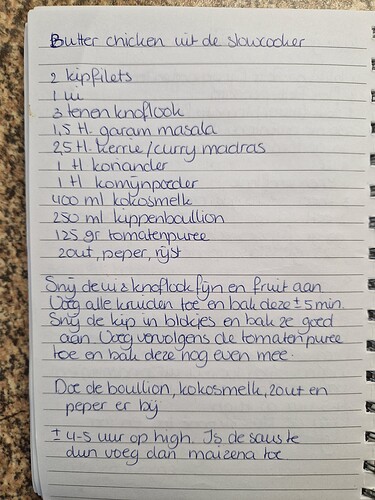 Butter chicken uit de slowcooker
2 kipfilets
1 ui
3 tenen knoflook
1,5 tl. garam masala
2,5 tl. kerrie/curry madras
1 tl koriander
1 tl komijnpoeder
400 ml kokosmelk
250 ml kippenboullion
125 gr tomatenpuree
zout, peper, rijst
Snij de ui & knoflook fijn en fruit aan
Voeg alle kruiden toe en bak deze ± 5 min.
Snij de kip in blokjes en bak ze goed
aan. Voeg vervolgens de tomatenpuree
toe en bak deze nog even mee.
Doe de boullion, kokosmelk, zout en
peper er bij
± 4-5 uur op high. Is de saus te
dun voeg dan maizena toe